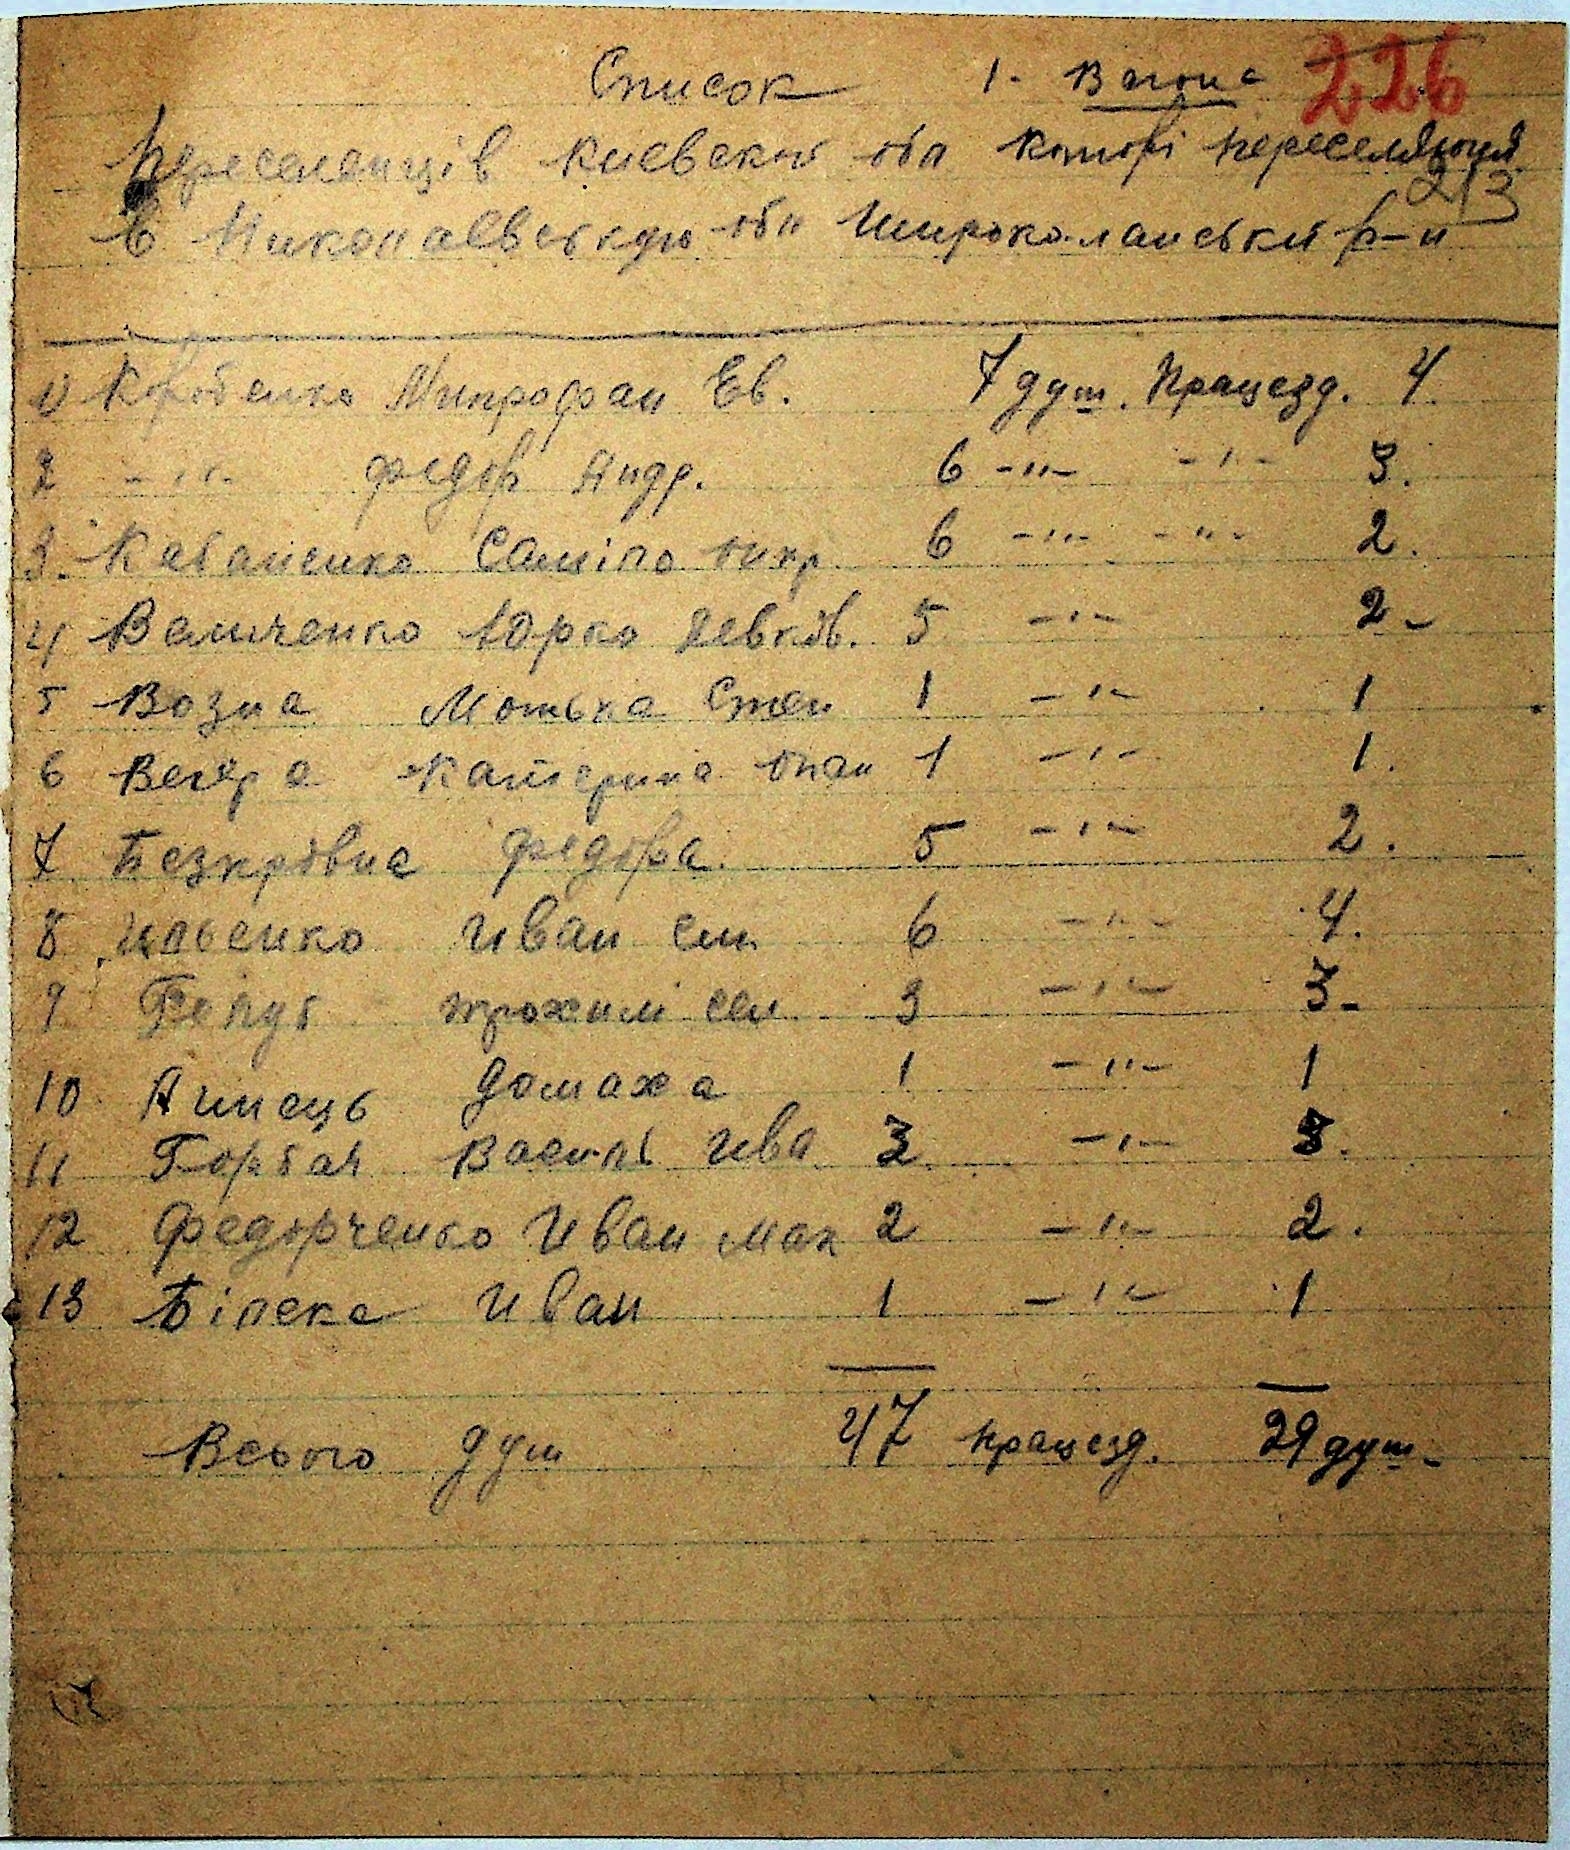 Список 1. Вагона 226
Переселенців Киевскої обл которі переселяются
213
в Миколаевськую обл Широколанський р-н
1) Коробенко Митрофан Ев. 7 душ. Працезд. 4
2 -"- Федор Андр. 6 -"- -"- 3.
3. Кабаненко Саміло 6 -"- -"- 2.
4 Величенко Юрко Левков. 5 -"- 2-
5 Возна Мотька Степ 1 -"- 1
6 Вегера Катерина Опан 1 -"- 1.
7 Безкровна Федора. 5 -"- 2.
8 Ильенко Иван Сем 6 -"- 4.
9 Трохим Сем 3 -"- 3-
10 Домаха 1 -"- 1
11 Горбач Василь Ива 3 -"- 3.
12 Федорченко Иван Мак 2 -"- 2.
13 Білека Иван 1 -"- 1
Всього душ 47 працезд. 29 душ-